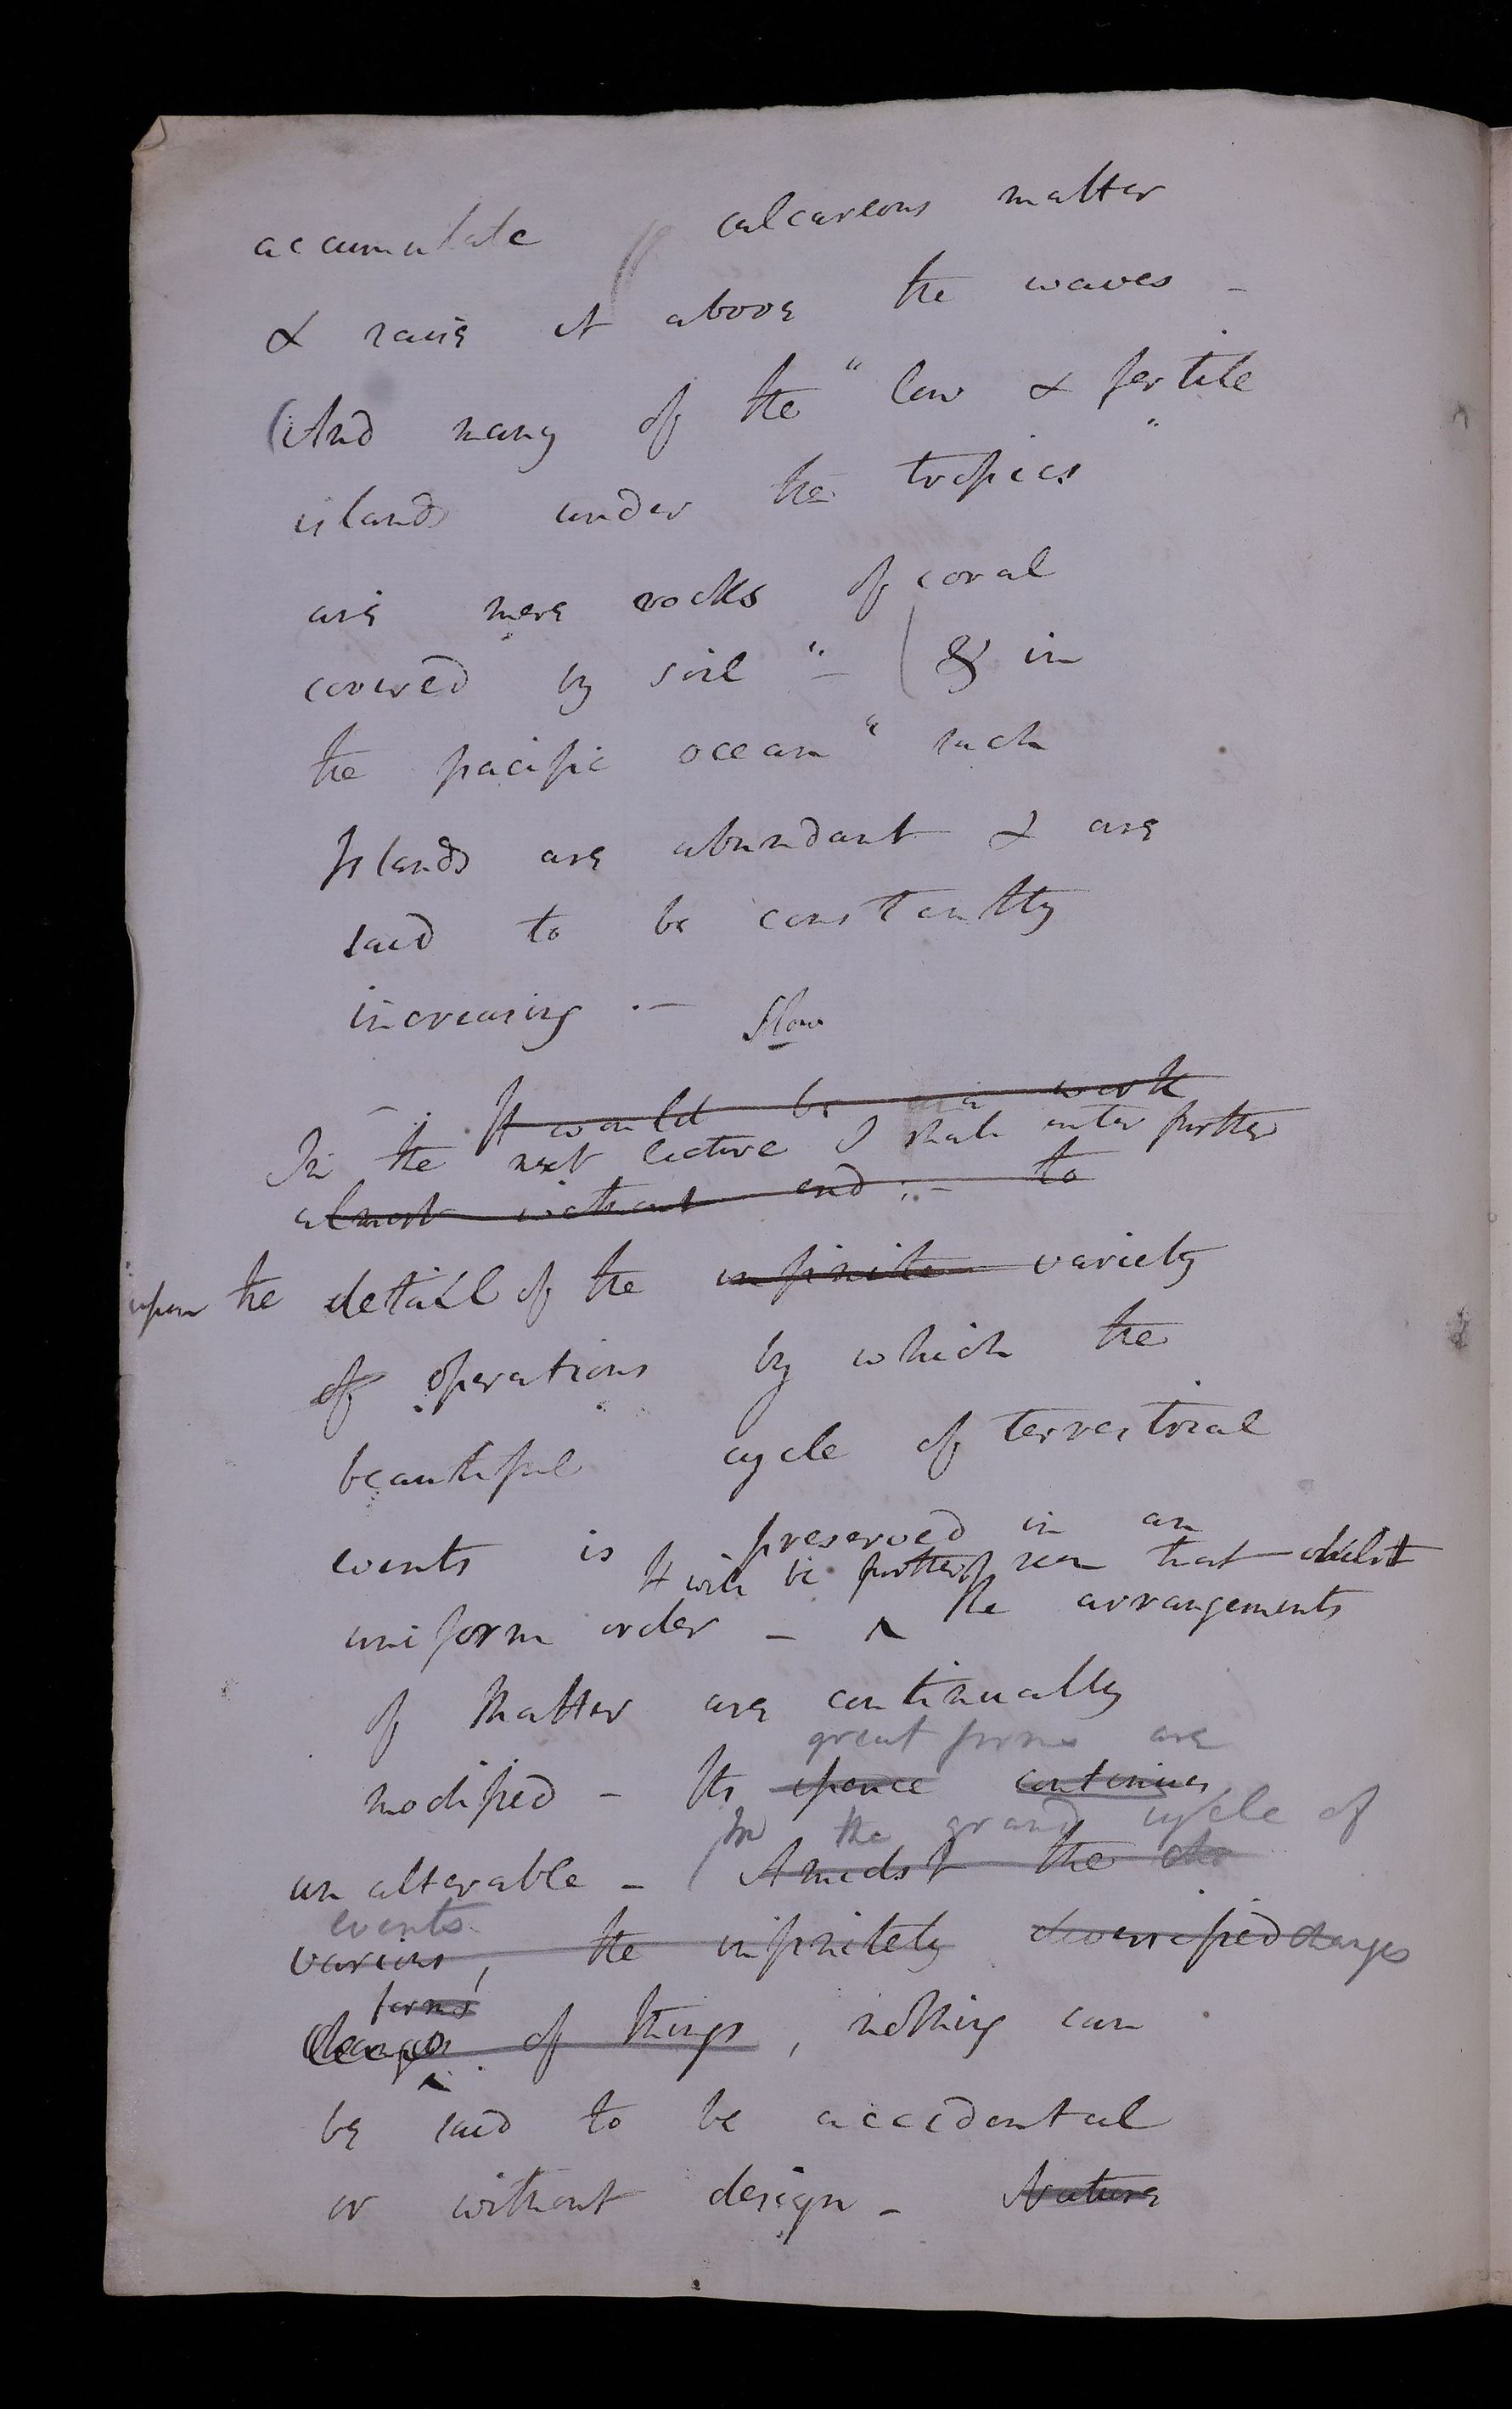 accumulate calcareous matter
& raise it above the waves –
(And many of the "low & fertile
islands under the tropics"
are mere rocks of coral
covered by soil" – (& in
the pacific ocean "such
Islands are abundant & are
said to be constantly
increasing. –
Slow
It would be a work
In the next lecture I shall enter further
almost without end; – to
upon the detail of the infinite variety
of operations by which the
beautiful cycle of terrestrial
events is preserved in an
It will be further seen that whilst
uniform order – ^ the arrangements
of Matter are continually
great forms are
modified – Its essence continues
In the grand cycle of
unalterable – (Amidst the
events
various, the infinitely diversified changes
forms
changes of things, nothing can
be said to be accidental
or without design – Nature